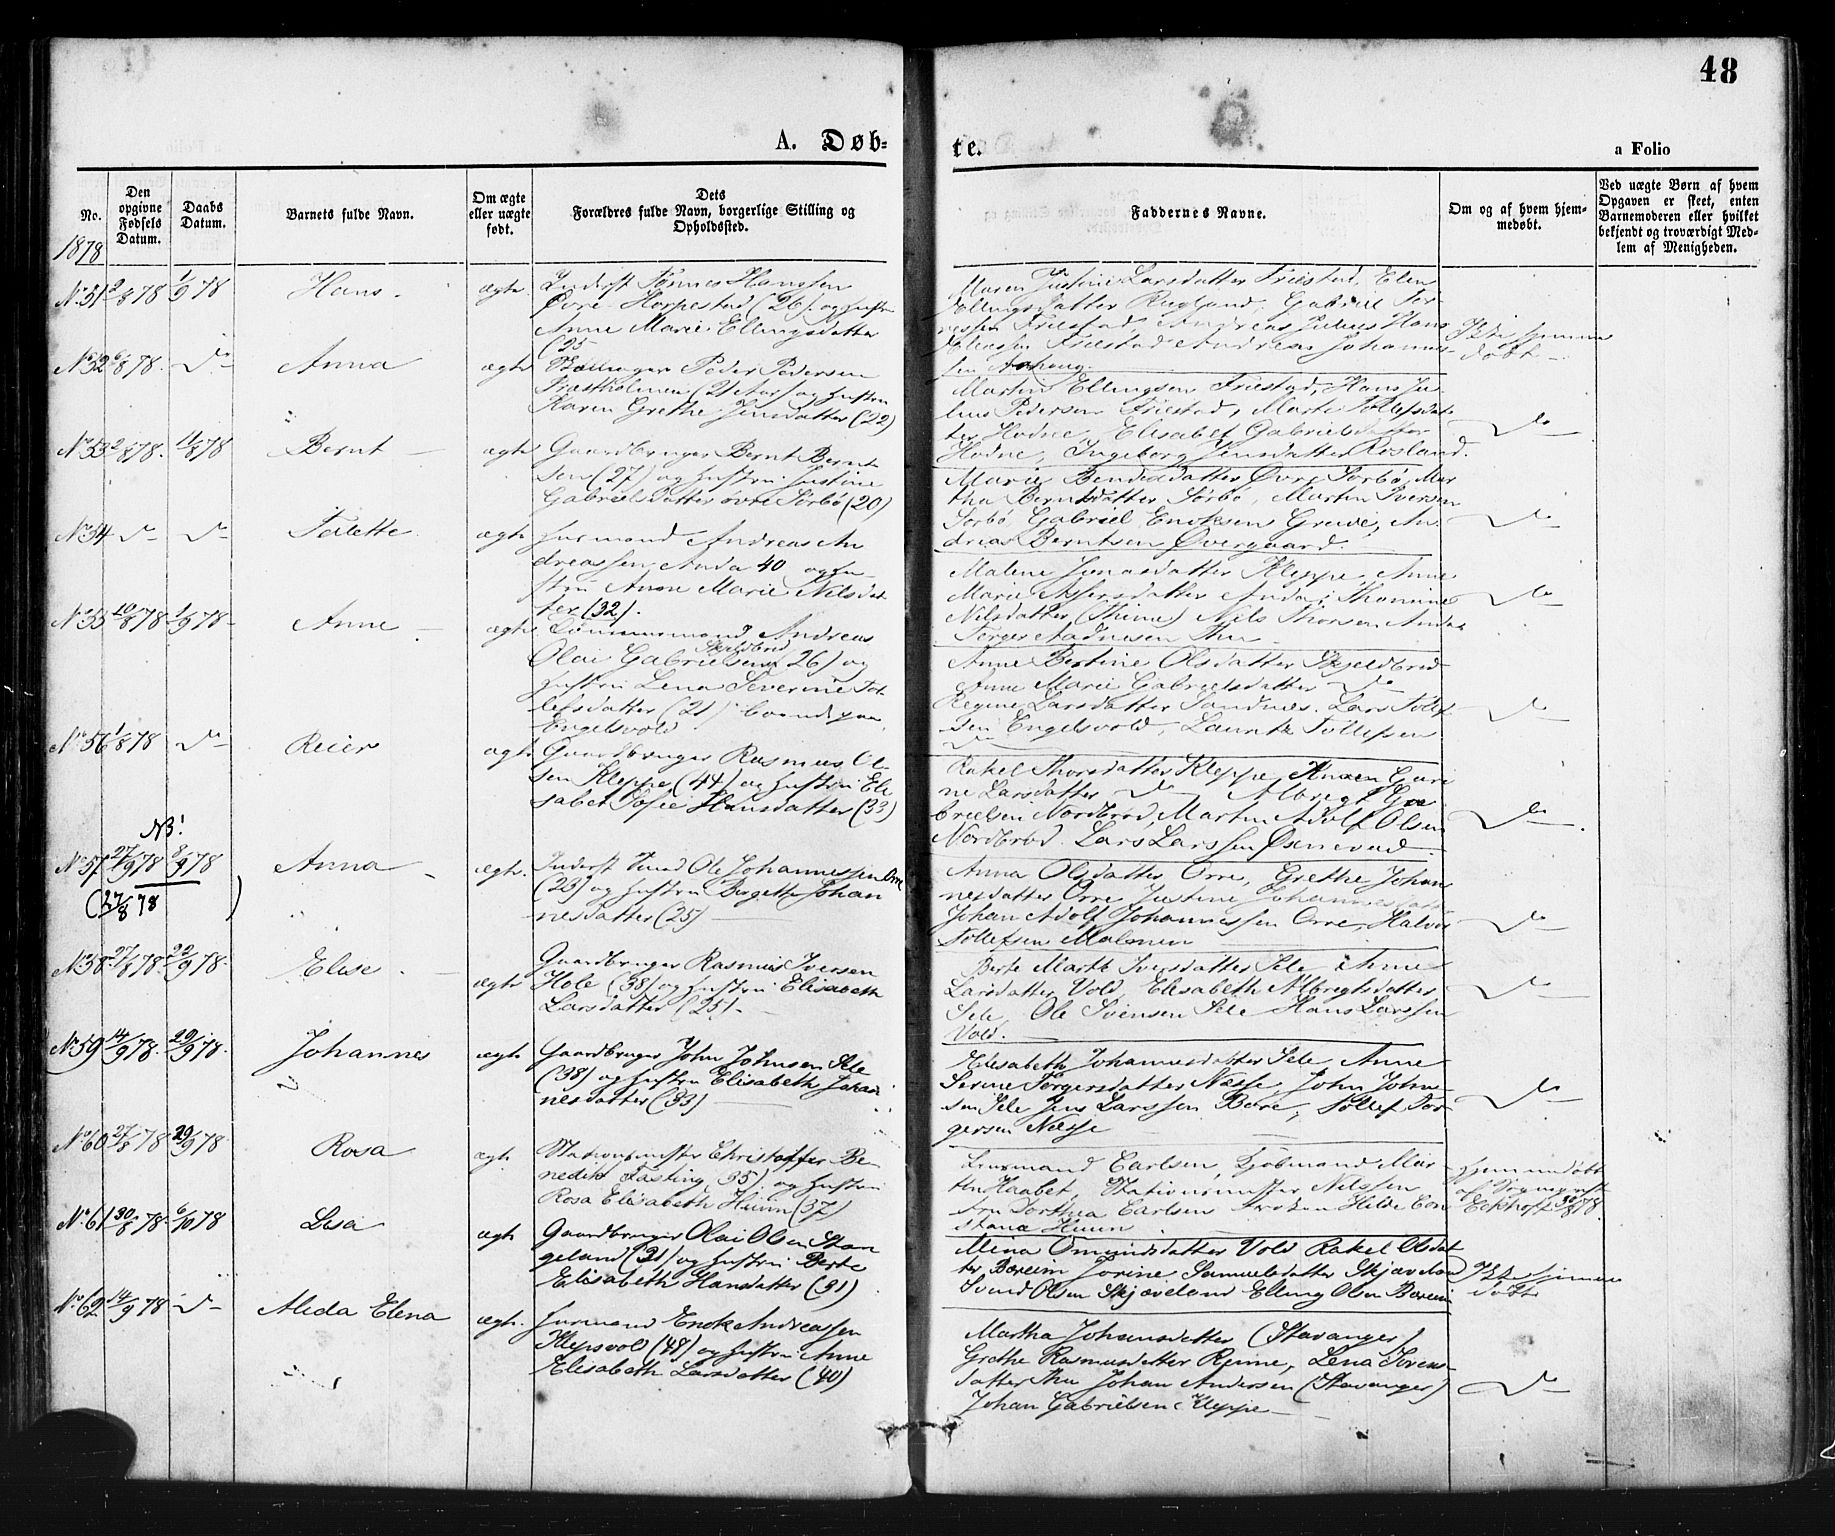 48
A. Døb-
te.
a Folio
No.
Den opgivne Fødsels Datum.
Daabs Datum.
Barnets fulde Navn.
Om ægte eller uægte født.
Dets Forældres fulde Navn, borgerlige Stilling og Opholdssted.
Faddernes Navne.
Om og af hvem hjemmedøbt.
Ved uægte Børn af hvem Opgaven er skeet, enten Barnemoderen eller hvilket bekjendt og troværdigt Medlem af Menigheden.
1878
No 51 2/8 78 1/9 78 Hans. ægte Inderst Tønnes Hanssen
Øvre Horpestad (26) og hustru
Anne Marie Ellingsdatter
(25
Maren Justine Larsdatter Friestad, Elen
Ellingsdatter Rugland, Gabriel Tor-
Friestad, Andreas Julius Hans
Friestad Andreas Johannes-
sen
Ikke hjemme
døbt
No 52 6/8 78. do Anna ægte Peder Pedersen
(21 Aar) og hustru
Karen Grethe Jensdatter (22)
Martin Ellingsen Friestad, Hans Ju-
lius Pedersen Friestad, Marte Tollefsdat
ter Hodne, Elisabet Gabrielsdatter
Hodne, Ingeborg Jensdatter Rosland.
do
No 53 2/8 78. 11/8 78 Bernt ægte Gaardbruger Bernt Bernt
sen (27) og hustru Justine
Gabrielsdatter øvre Sørbø (20)
Marie Bendixdatter Øvre Sørbø, Mar
tha Berntsdatter Sørbø, Martin Iversen
Sørbø Gabriel Enoksen Grude, An
dreas Berntsen Øvergaard.
do
No 54 do do Tolette ægte Huusmand Andreas An
dreassen Anda 40 og hu
stru Anne Marie Nilsdat
ter (32).
Malene Jonasdatter Kleppe, Anne
Marie Assersdatter Anda, Thomine
Nilsdatter (Thime) Nils Thorsen Anda
Torger Aadnesen Thu
do
No 55 10/8 78 1/9 78 Anne ægte Tømmermand Andreas
Olai Gabrielsen Skjeldbred (26) og
hustru Lena Severine Tol
lefsdatter (21) boende paa
Engelsvold.
Anne Bertine Olsdatter Skjeldbred
Anne Marie Gabrielsdatter do
Regine Larsdatter Sandnes. Lars Tollef
sen Engelsvold, Lauritz Tollefsen
do
do
No 56 1/8 78 do Reier ægte Gaardbruger Rasmus Ol
sen Kleppe (44) og hustru Eli
sabet Sofie Hansdatter (33)
Rakel Thorsdatter Kleppe, Karen Gure
ne Larsdatter do Albregt Ga
brielsen Nordbrød, Martin Adolf Olsen
Nordbrød. Lars Larssen Øxnevad.
do
NB!
No 57 27/9 78 8/9 78 Anna ægte. Inderst Ole Johannessen Orre
(23) og hustru Birgitte Johan
nesdatter (25)
(27/8 78)
Anna Olsdatter Orre, Grethe Johan
nesdatter Orre Justine Johannesdatter
Johan Adolf Johannessen Orre, Halvor
Tollefsen Malmen
do
No 58. 27/8 78. 22/9 78. Elise ægte Gaardbruger Rasmus Iversen
Hole (38) og hustru Elisabeth
Larsdatter (25).
Berte Marthe Iversdatter Sele Anne
Larsdatter Vold Elisabeth Albregtsdatter
Sele, Ole Svensen Sele Hans Larssen
Vold.
do
No 59 14/9 78. 29/9 78. Johannes ægte Gaardbruger John Johnsen Sele
(38) og hustru Elisabeth Johan
nesdatter (33)
Elisabeth Johannesdatter Sele, Anne
Serine Torgersdatter Næsse, John John
sen Sele Jens Larssen Bore, Tollef Tor
gersen Næsse
do
No 60 27/8 78 29/9 78 Rosa ægte Stationsmester Christoffer Be-
nedikt Fasting, 35) og hustru
Rosa Elisabeth Huun (37)
Carlsen, Kjøbmand Mar
tin Haabet, Stationsmester Nilssen
Fru Dorthea Carlsen Frøken Hilde Con
stance Huun
Hjemmedøbt
af
Eckhoff 30/8 78.
No 61 30/8 78 6/10 78 Lisa ægte Gaardbruger Olai Olsen Stan
geland (31) og hustru Berte
Elisabeth Hansdatter (31)
Mina Omundsdatter Vold Rakel Olsdat
ter Boreim Jorine Samuelsdatter Skjæveland
Svend Olsen Skjæveland Elling Olsen Boreim
Ikke hjemme
døbt
No 62 14/9 78 do Alida Elena ægte. Huusmand Enok Andreassen
Klepsvold (48) og hustru Anne
Elisabeth Larsdatter (40)
Martha Johansdatter (Stavanger)
Grethe Rasmusdatter Reime, Lena Sørens-
datter Thu Johan Andersen (Stavanger)
Johan Gabrielsen Kleppe
do